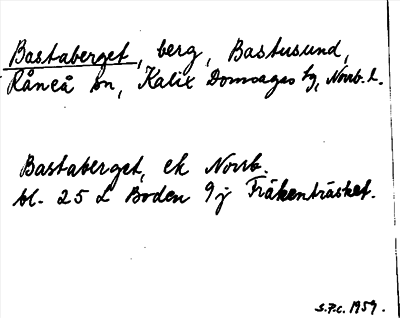 Bastaberget, berg, Bastusund,
Råneå sn, Kalix Domsagas tg, Norrb. l.
Bastaberget, ek Norrb.
bl. 25 L Boden 9 j Fräkenträsket.
S.P.C. 1959.